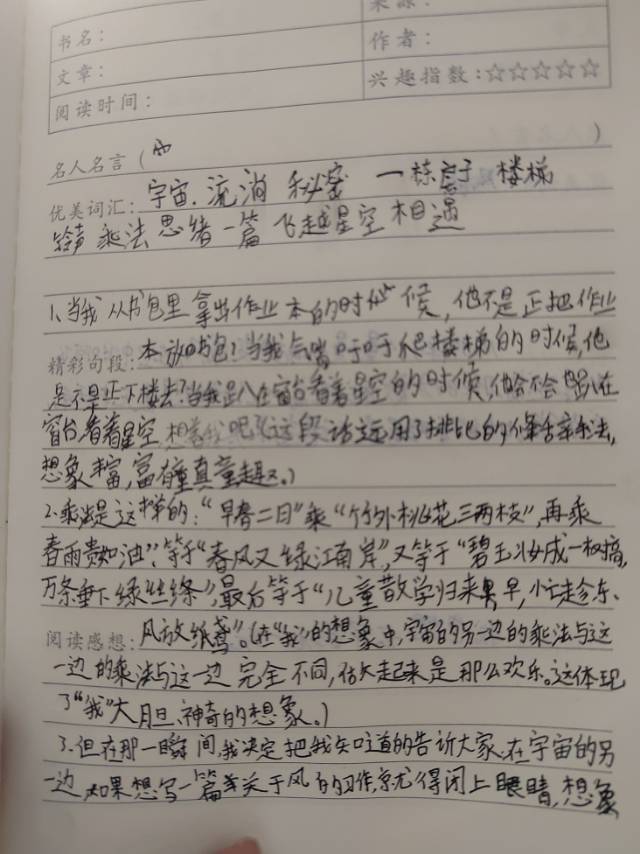 来源:
书名:
作者:
文章:
兴趣指数:☆☆☆☆☆
阅读时间:
名人名言( )
优美词汇: 宇宙. 流淌 秘密 一栋房子 楼梯
铃声 乘法 思绪 一篇 飞越星空 相遇
1、当我从书包里拿出作业本的时候,他是不是正把作业
精彩句段: 本放回书包?当我气喘吁吁爬楼梯的时候,他
是不是正下楼去?当我趴在窗台看着星空的时候,他会不会也趴在
窗台看着星空,想着我呢?(这段话运用了排比的修辞手法,
想象丰富,富有童真童趣。)
2.乘法是这样的:“早春二月”乘“竹外桃花三两枝”,再乘
春雨贵如油”,等于“春风又绿江南岸”,又等于“碧玉妆成一树高,
万条垂下绿丝绦”,最后等于“儿童散学归来早,忙趁东
阅读感想: 风放纸鸢”。(在“我”的想象中,宇宙的另一边的乘法与这
一边的乘法与这一边完全不同,估大起来是那么欢乐。这体现
了“我”大胆、神奇的想象。)
3.但在那一瞬间,我决定把我知道的告诉大家:在宇宙的另
一边,如果想写一篇关于风的习作,就得闭上眼睛,想象